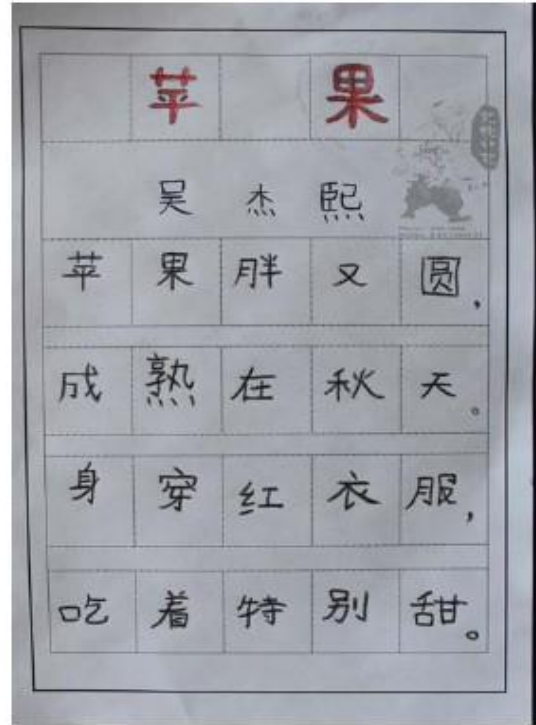 苹果
吴杰熙
苹果胖又圆，
成熟在秋天。
身穿红衣服，
吃着特别甜。